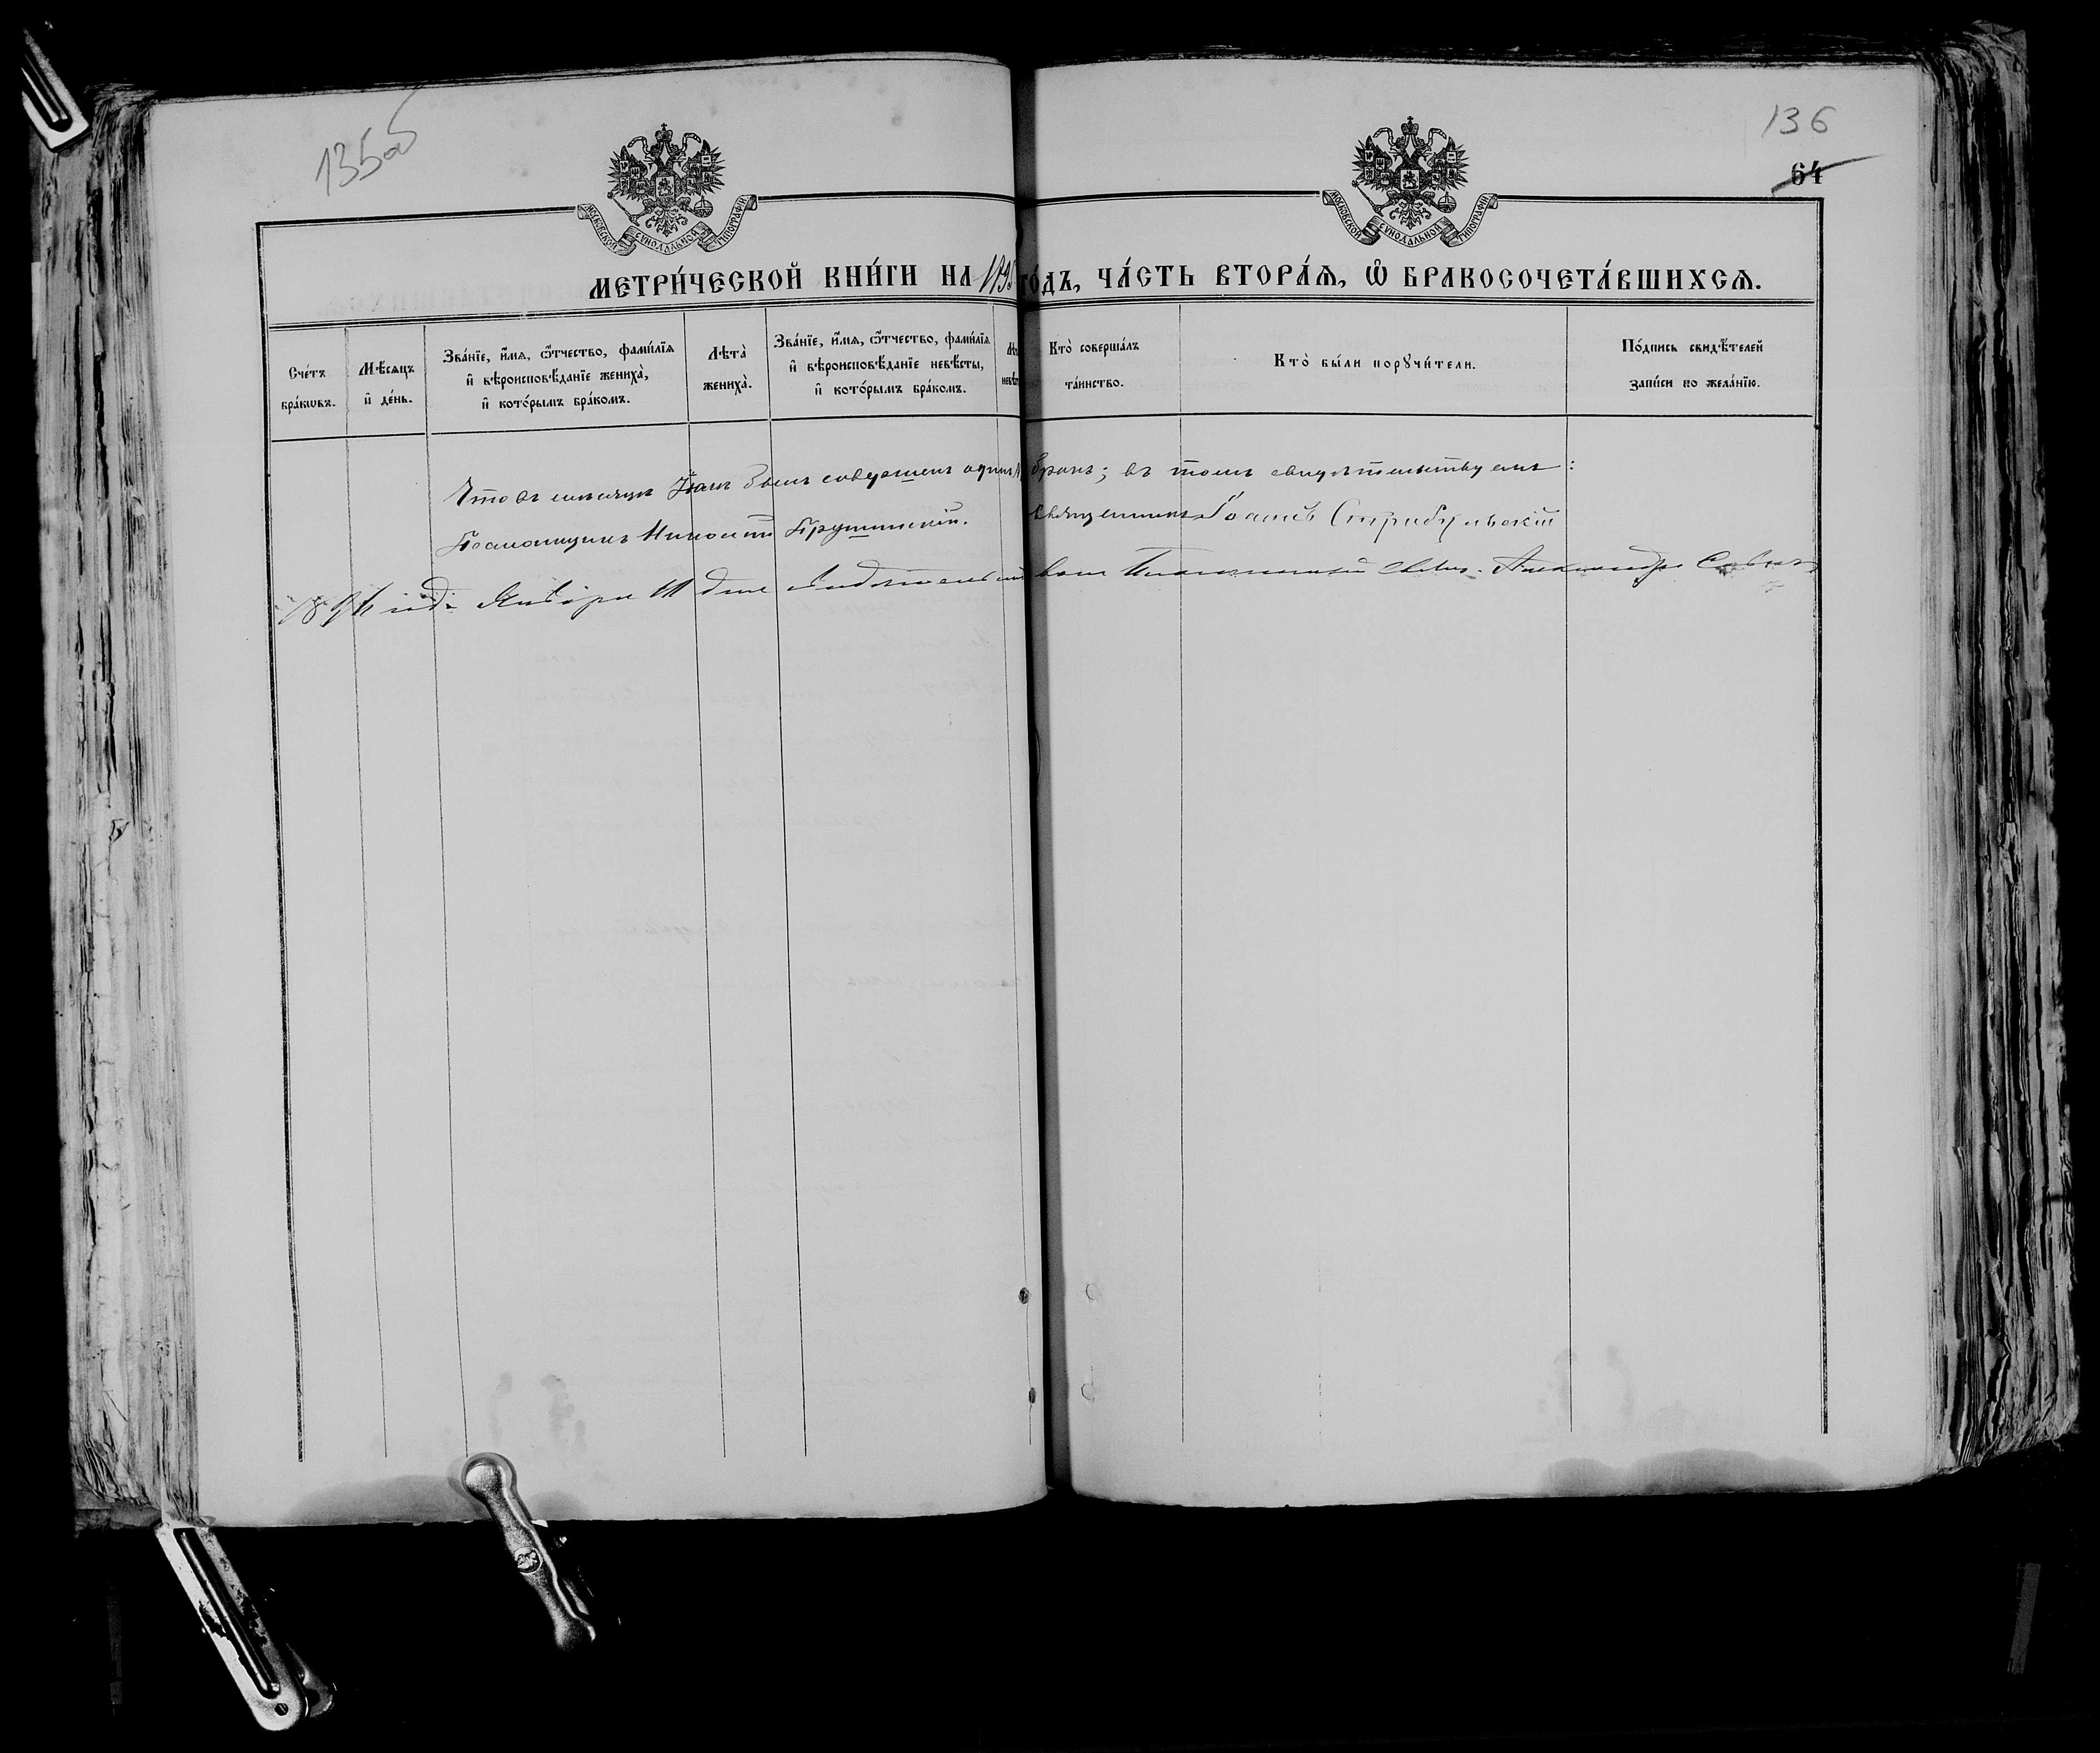 135об
136
64
МОСКОВСКОЙ СѴНОДАЛЬНОЙ ТИПОГРАФІИ
МОСКОВСКОЙ СѴНОДАЛЬНОЙ ТИПОГРАФІИ
МЕТРИ́ЧЕСКОЙ КНИ́ГИ НА 1895 ГО́ДЪ, ЧА́СТЬ ВТОРА́Я, Ѡ҆ БРАКОСОЧЕТА́ВШИХСЯ.
Сче́тъ бра́кѡвъ.
Мѣ́сяцъ и҆ де́нь.
Зва́нїе, и҆́мя, ѻ҆́тчество, фамі́лїя и҆ вѣроисповѣ́данїе жениха̀, и҆ кото́рымъ бра́комъ.
Лѣта̀ жениха̀.
Зва́нїе, и҆́мя, ѻ҆́тчество, фамі́лїя и҆ вѣроисповѣ́данїе невѣ́сты, и҆ кото́рымъ бра́комъ.
Кто̀ соверша́лъ та́инство.
Кто̀ бы́ли порꙋчи́тели.
По́дпись свидѣ́телей за́писи по жела́нїю.
Что въ мѣсяцѣ Іюлѣ былъ совершенъ одинъ бракъ; въ томъ свидѣтельствуемъ:
Священникъ Іоаннъ Стрибульскій
Псаломщикъ Крушинскій.
1896 года Января дня Александръ